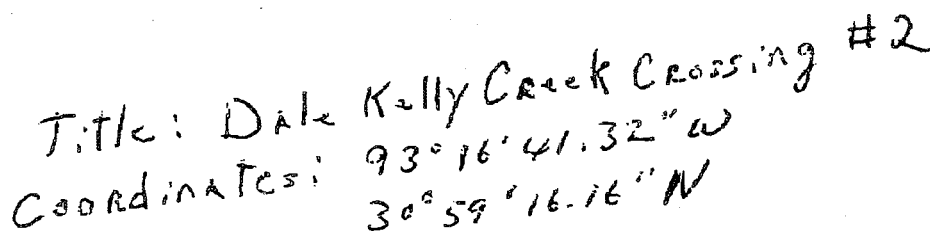 Title: Dale Kelly Creek Crossing #2
Coordinates: 93° 16' 41.32" W
30° 59' 16.16" N